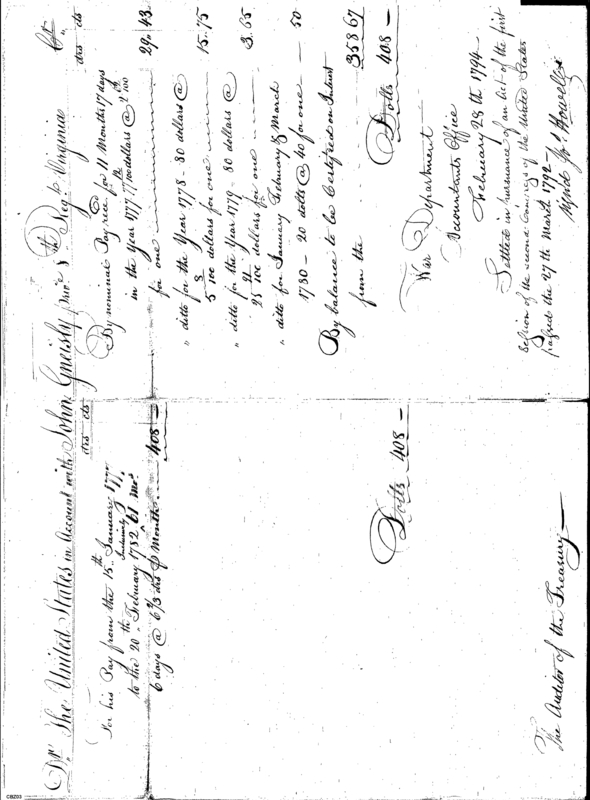 Dr. The United States in Account with John Gneisly priv.t 8th Regt Virginia Cr
drs cts
For his Pay from the 15th January 1777
to the 20th February 1782 Inclusively 61 Mos.
6 days @ 6 2/3 drs P Month 408 —
Dolls 408 —
The Auditor of the Treasury —
drs cts
By nominal Pay rec'd for 11 Months 17 days
in the Year 1777 77 dollars @
for one 29. 43
" ditto for the Year 1778 – 80 dollars @
5 8/100 dollars for one 15. 75
" ditto for the Year 1779 – 80 dollars @
21 dollars for one 3. 65
" ditto for January February & March
1780 – 20 dolls @ 40 for one — 50
By balance to be Certified on Interest
from the 358 67
Dolls 408 —
War Department
Accountants Office
February 28th 1794 —
Settled in pursuance of an act of the first
Session of the second Congress of the United States
passed the 27th March 1792 —
Signed Jos. Howell
CBZ03